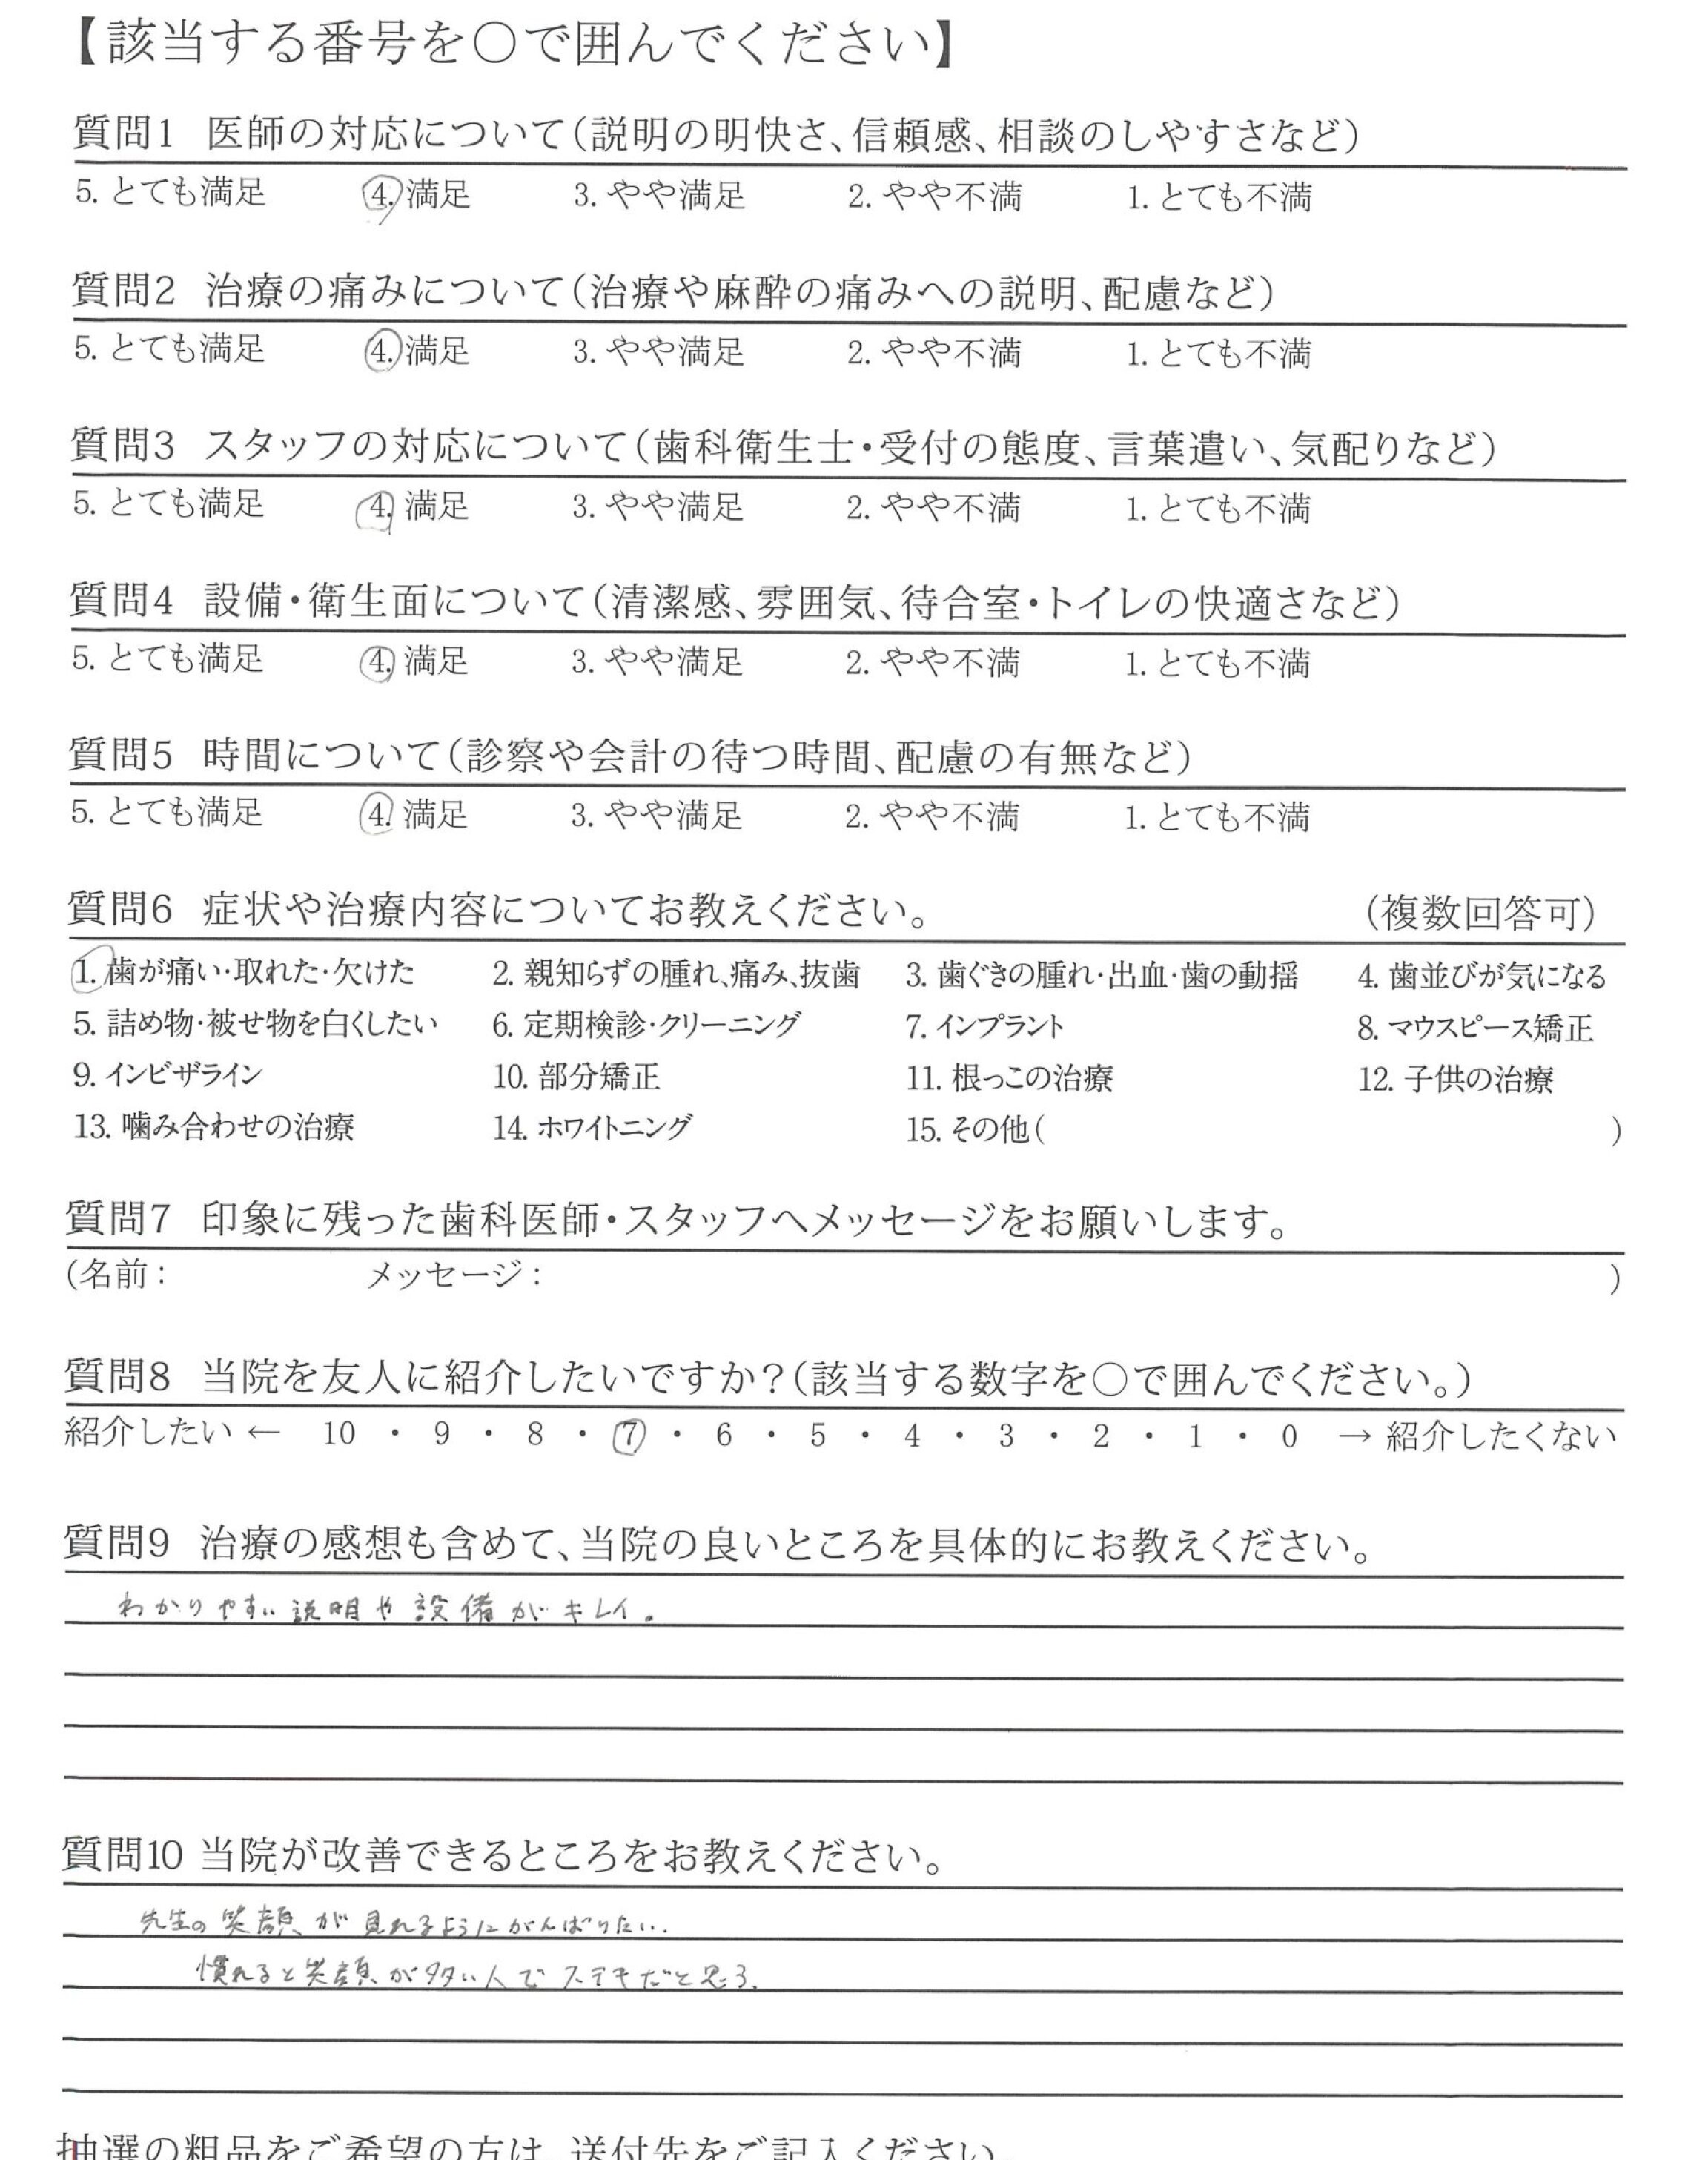 【該当する番号を○で囲んでください】
質問1 医師の対応について(説明の明快さ、信頼感、相談のしやすさなど)
5. とても満足 4. 満足 3. やや満足 2. やや不満 1. とても不満
質問2 治療の痛みについて(治療や麻酔の痛みへの説明、配慮など)
5. とても満足 4. 満足 3. やや満足 2. やや不満 1. とても不満
質問3 スタッフの対応について(歯科衛生士・受付の態度、言葉遣い、気配りなど)
5. とても満足 4. 満足 3. やや満足 2. やや不満 1. とても不満
質問4 設備・衛生面について(清潔感、雰囲気、待合室・トイレの快適さなど)
5. とても満足 4. 満足 3. やや満足 2. やや不満 1. とても不満
質問5 時間について(診察や会計の待つ時間、配慮の有無など)
5. とても満足 4. 満足 3. やや満足 2. やや不満 1. とても不満
質問6 症状や治療内容についてお教えください。 (複数回答可)
1. 歯が痛い・取れた・欠けた 2. 親知らずの腫れ、痛み、抜歯 3. 歯ぐきの腫れ・出血・歯の動揺 4. 歯並びが気になる
5. 詰め物・被せ物を白くしたい 6. 定期検診・クリーニング 7. インプラント 8. マウスピース矯正
9. インビザライン 10. 部分矯正 11. 根っこの治療 12. 子供の治療
13. 噛み合わせの治療 14. ホワイトニング 15. その他( )
質問7 印象に残った歯科医師・スタッフへメッセージをお願いします。
(名前: メッセージ: )
質問8 当院を友人に紹介したいですか?(該当する数字を○で囲んでください。)
紹介したい ← 10 ・ 9 ・ 8 ・ 7 ・ 6 ・ 5 ・ 4 ・ 3 ・ 2 ・ 1 ・ 0 → 紹介したくない
質問9 治療の感想も含めて、当院の良いところを具体的にお教えください。
わかりやすい説明や設備がキレイ。
質問10 当院が改善できるところをお教えください。
先生の笑顔が見れるようにがんばりたい.
慣れると笑顔が多い人でステキだと思う.
抽選の粗品をご希望の方は、送付先をご記入ください。